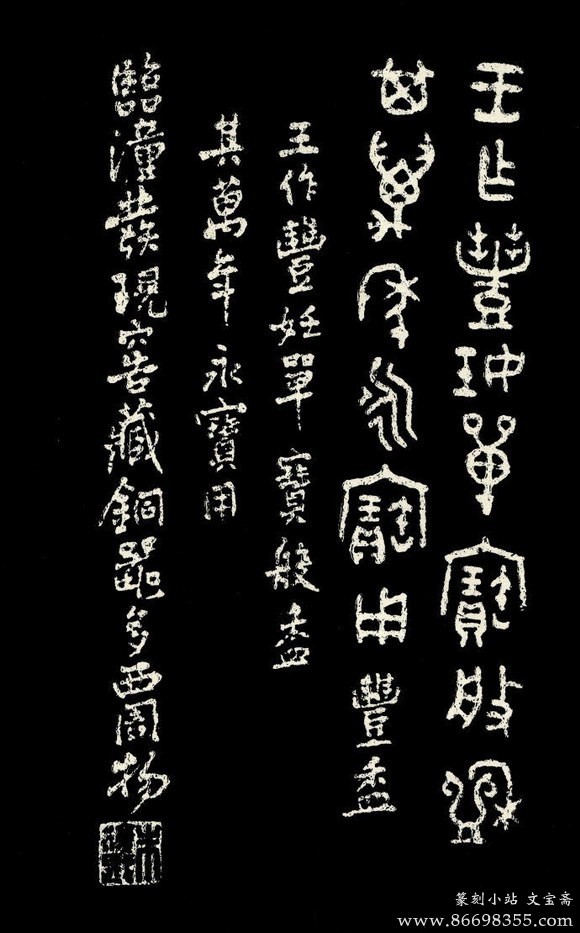 王乍豐妊單寶般盉
其萬年永寶用豐盉
王作豐妊單寶般盉
其萬年永寶用
臨潼發現窖藏銅器多西周物
篆刻小站 文宝斋
www.86698355.com